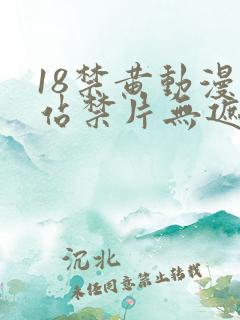 18禁黄動漫
佔禁片無遮
沉北
未任同意禁止转载